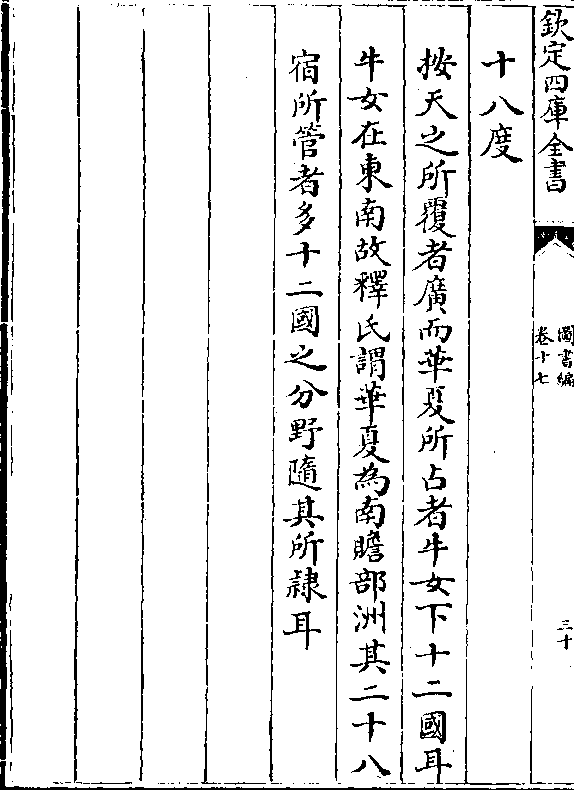 欽定四庫全書
圖書編
卷十七
三十
十八度
按天之所覆者廣而華夏所占者牛女下十二國耳
牛女在東南故釋氏謂華夏為南贍部洲其二十八
宿所管者多十二國之分野隨其所隸耳